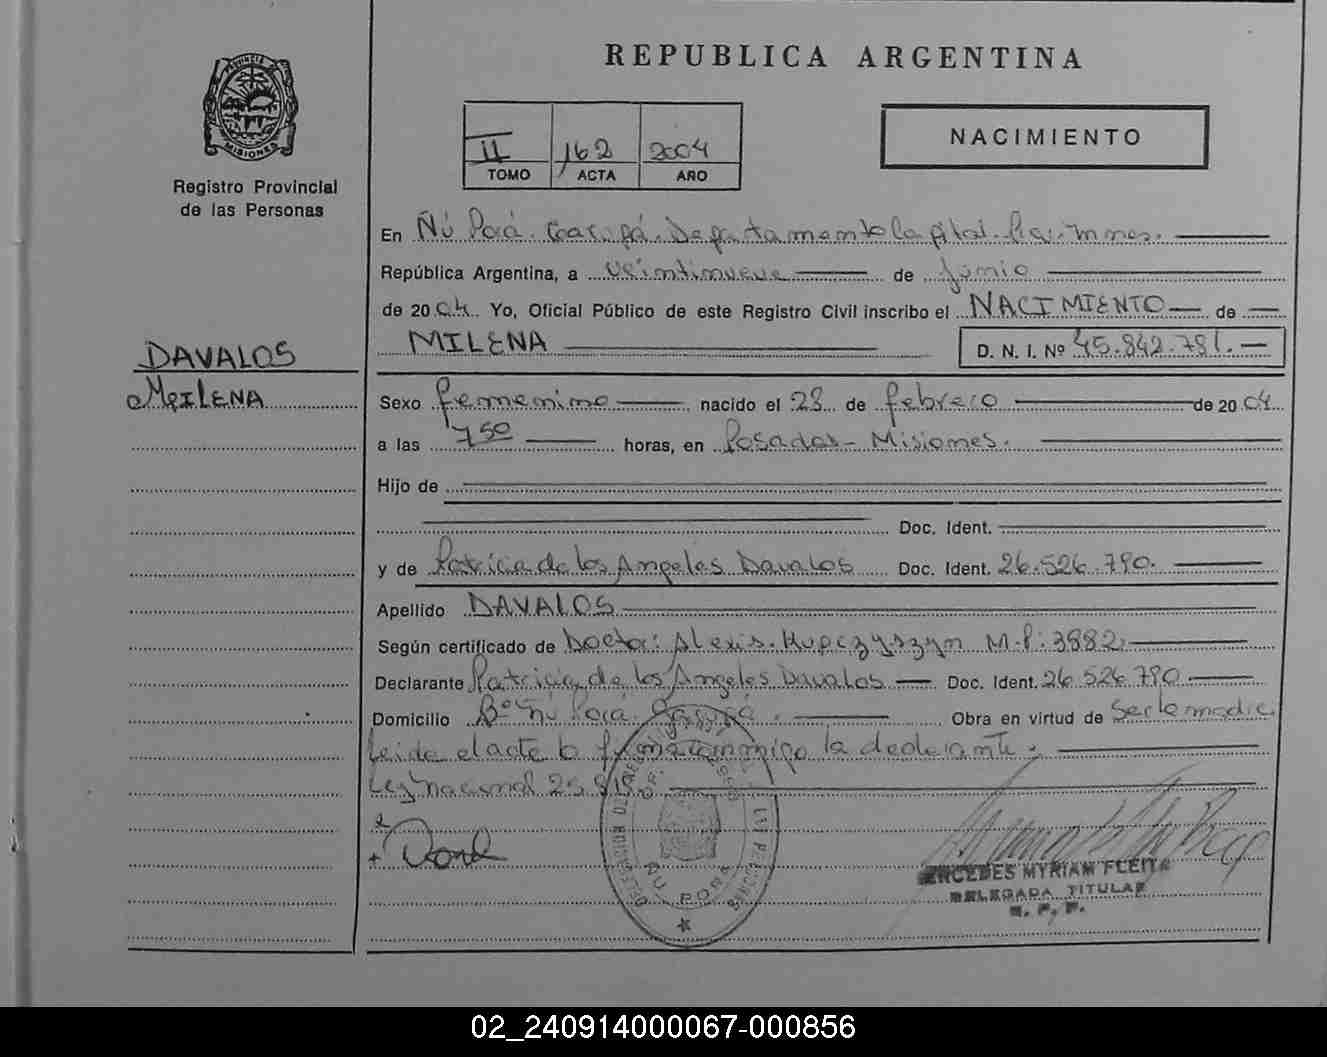 REPUBLICA ARGENTINA
PROVINCIA DE
MISIONES
Registro Provincial
de las Personas
NACIMIENTO
II 162 2004
TOMO ACTA AÑO
En Ñú Porá. Garupá. Departamento Capital. Mnes.
República Argentina, a veintinueve de Junio
de 2004. Yo, Oficial Público de este Registro Civil inscribo el NACIMIENTO de
MILENA D. N. I. Nº 45.842.781.
DAVALOS
MILENA
Sexo femenino nacido el 28 de febrero de 2004
a las 7 50 horas, en Posadas - Misiones.
Hijo de
Doc. Ident.
y de Patricia de los Angeles Davalos Doc. Ident. 26.526.790.
Apellido DAVALOS
Según certificado de Doctor: Alexis. Kupczyszyn M.P: 3882.
Declarante Patricia de los Angeles Davalos Doc. Ident. 26 526 790
Domicilio Bº Ñu Porá. Garupá. Obra en virtud de ser la madre
leida el acta la firma conmigo la declarante.
Ley nacional
ÑU PORA
MYRIAM FLEITA
DELEGADA TITULAR
R. P. P.
02_240914000067-000856